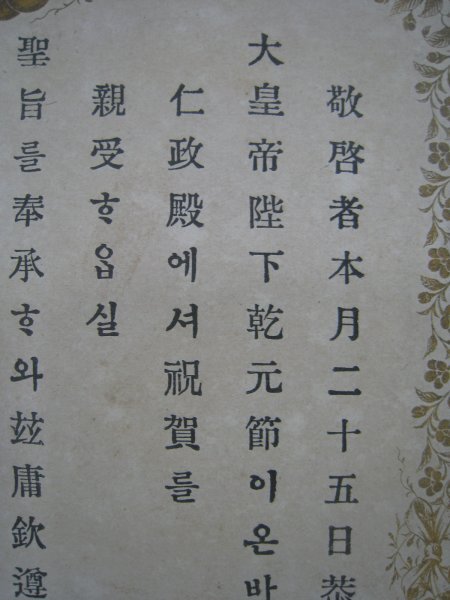 敬啓者本月二十五日恭
大皇帝陛下乾元節이온바
仁政殿에셔祝賀를
親受ᄒᆞ옵실
聖旨를奉承ᄒᆞ와玆庸欽遵